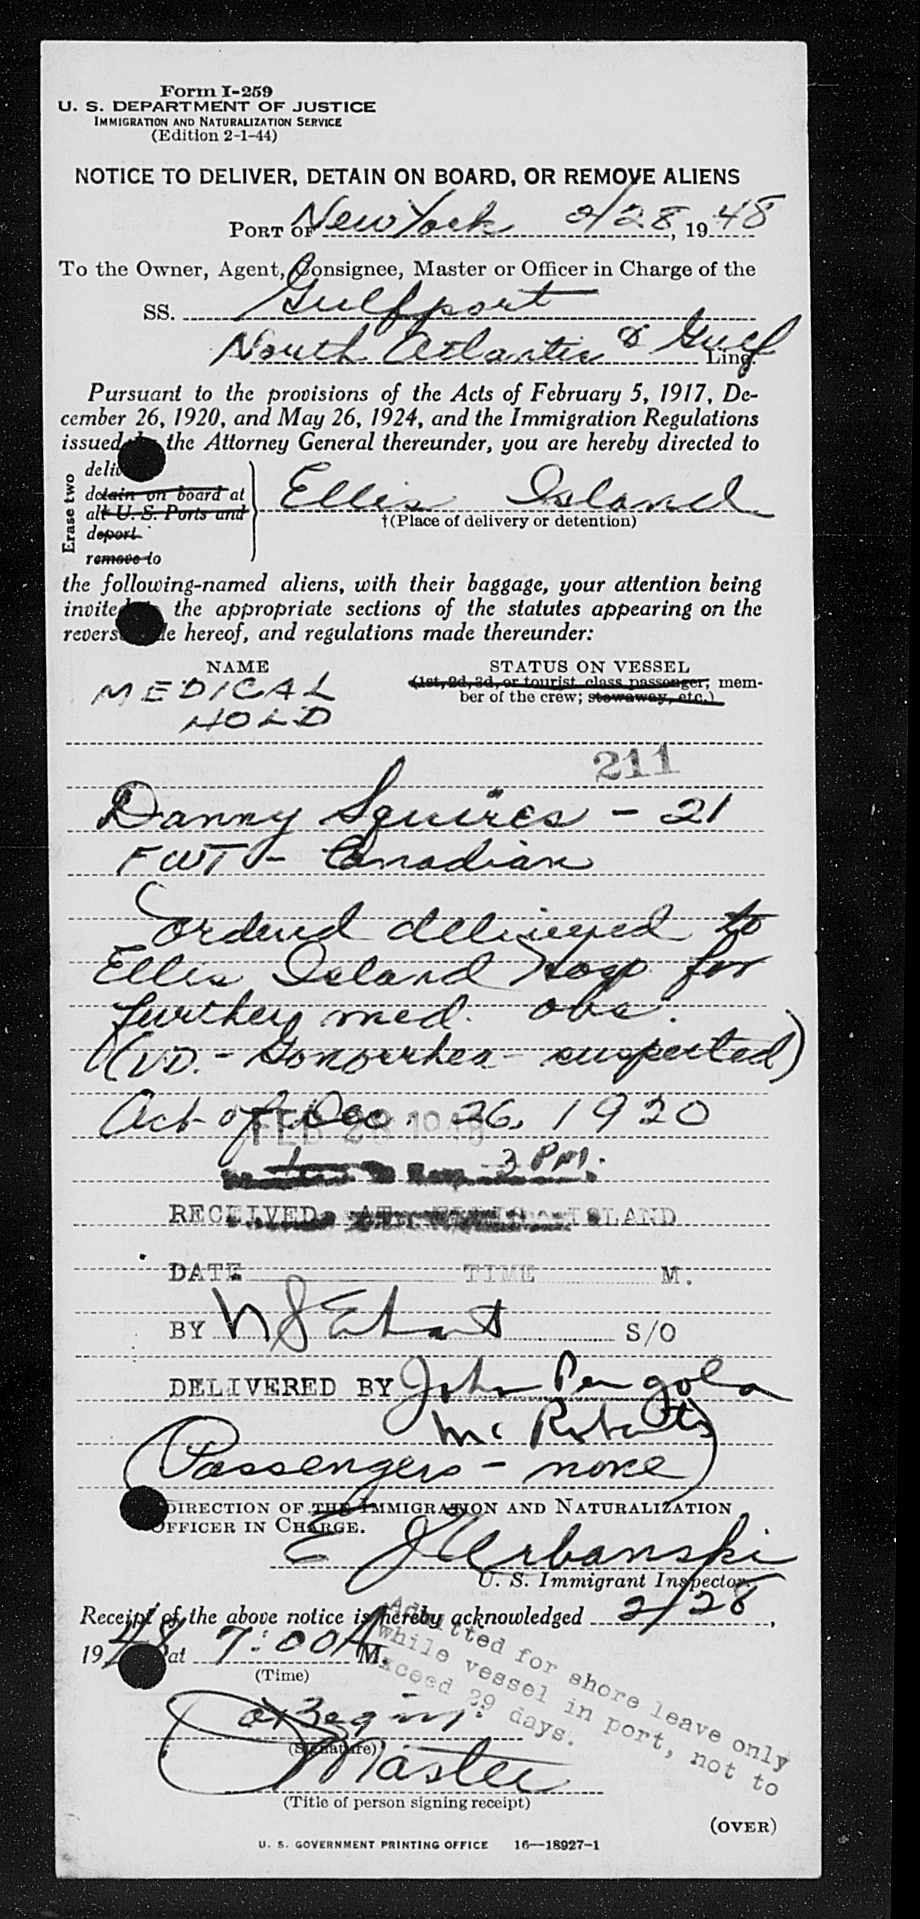 Form I-259
U. S. DEPARTMENT OF JUSTICE
IMMIGRATION AND NATURALIZATION SERVICE
(Edition 2-1-44)
NOTICE TO DELIVER, DETAIN ON BOARD, OR REMOVE ALIENS
PORT OF New York 2/28, 1948
To the Owner, Agent, Consignee, Master or Officer in Charge of the
SS. Gulfport
North Atlantic & Gulf Line.
Pursuant to the provisions of the Acts of February 5, 1917, De-
cember 26, 1920, and May 26, 1924, and the Immigration Regulations
issued the Attorney General thereunder, you are hereby directed to
Erase two
deli
detain on board at
all U. S. Ports and
deport
remove to
Ellis Island
†(Place of delivery or detention)
the following-named aliens, with their baggage, your attention being
invite the appropriate sections of the statutes appearing on the
revers e hereof, and regulations made thereunder:
NAME STATUS ON VESSEL
(1st, 2d, 3d, or tourist class passenger; mem-
ber of the crew; stowaway, etc.)
MEDICAL
HOLD
211
Danny Squires - 21
FWT - Canadian
ordered delivered to
Ellis Island Hosp for
further med. obs.
(VD. - Gonorrhea - suspected)
Act of Dec. 26, 1920
FEB 28 1948
3 PM.
RECEIVED AT ELLIS ISLAND
DATE TIME M.
BY S/O
DELIVERED BY John Pergola
Mc Roberts
(Passengers - none)
DIRECTION OF THE IMMIGRATION AND NATURALIZATION
OFFICER IN CHARGE.
E J Urbanski
U. S. Immigrant Inspector.
Receipt of the above notice is hereby acknowledged 2/28,
1948 at 7:00 A M.
(Time)
Admitted for shore leave only
while vessel in port, not to
exceed 29 days.
(Signature)
Master
(Title of person signing receipt)
(OVER)
U. S. GOVERNMENT PRINTING OFFICE 16—18927-1